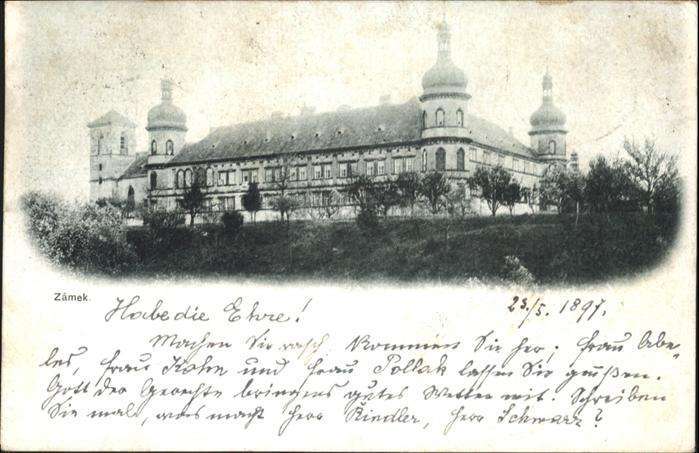 Zámek.
Habe die Ehre!
23./5. 1897.
Machen Sie rasch kommen Sie her; Frau Abe-
les, Frau Kohn und Frau Pollak lassen Sie grüßen.
Gott der Gerechte bringens gutes Wetter mit. Schreiben
Sie mal, was macht Herr Riedler, Herr Schwarz?